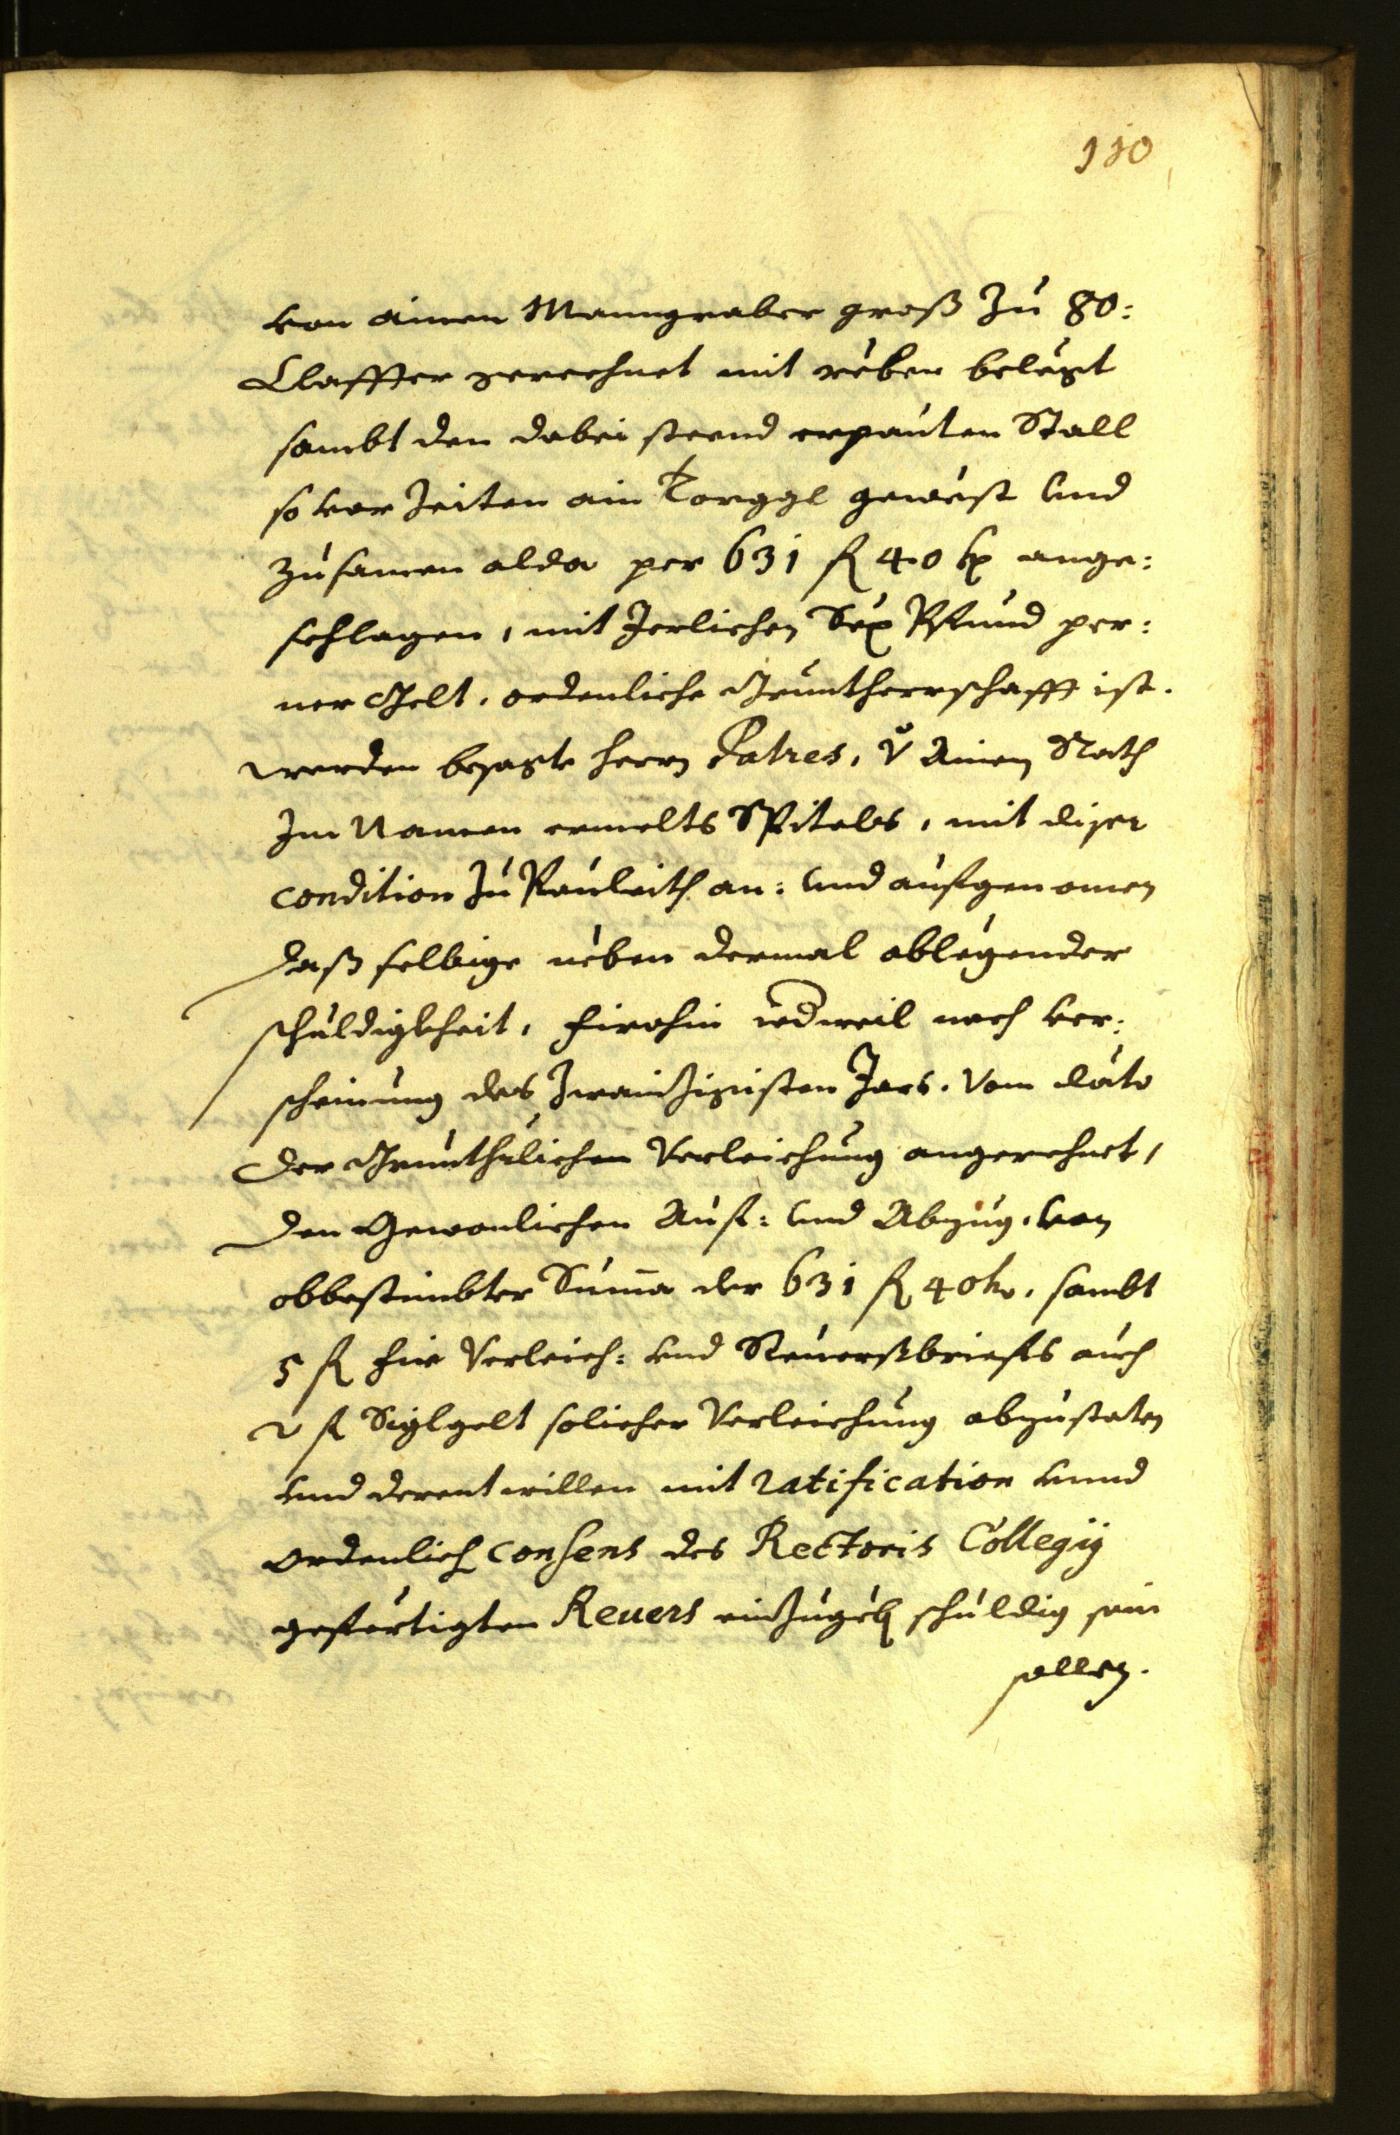 110
von ainen Manngraber groß zu 80:
Claffter gerechnet mit reben belegt
sambt den dabei steend erpauten Stall
so vor zeiten ain Torggl gewest und
zusamen alda per 631 fl 40 kr ange:
schlagen, mit Jerlichen Sex Pfund per:
ner Gelt, ordenliche Gruntherrschafft ist.
werden besagte herrn Patres, v Ainen Rath
Im Namen ermelts Spitals, mit diser
condition zu Pauleith an: und aufgenomen
daß selbige neben dermal ablegender
schuldigkheit, firohin iedweil nach ver:
scheinung des zwainzigisten Jars, vom dato
der Grunthrlichen Verleichung angerechnet,
den Gewonlichen Auf: und Abzug, von
obbestimbter Suma der 631 fl 40 kr, sambt
5 fl für Verleich: und Reuerßbriefs auch
2 fl Siglgelt solicher Verleichung abzustaten
und derentwillen mit ratification unnd
ordenlich consens des Rectoris Collegij
gefertigten Reuers einzugeben schuldig sein
sollen.